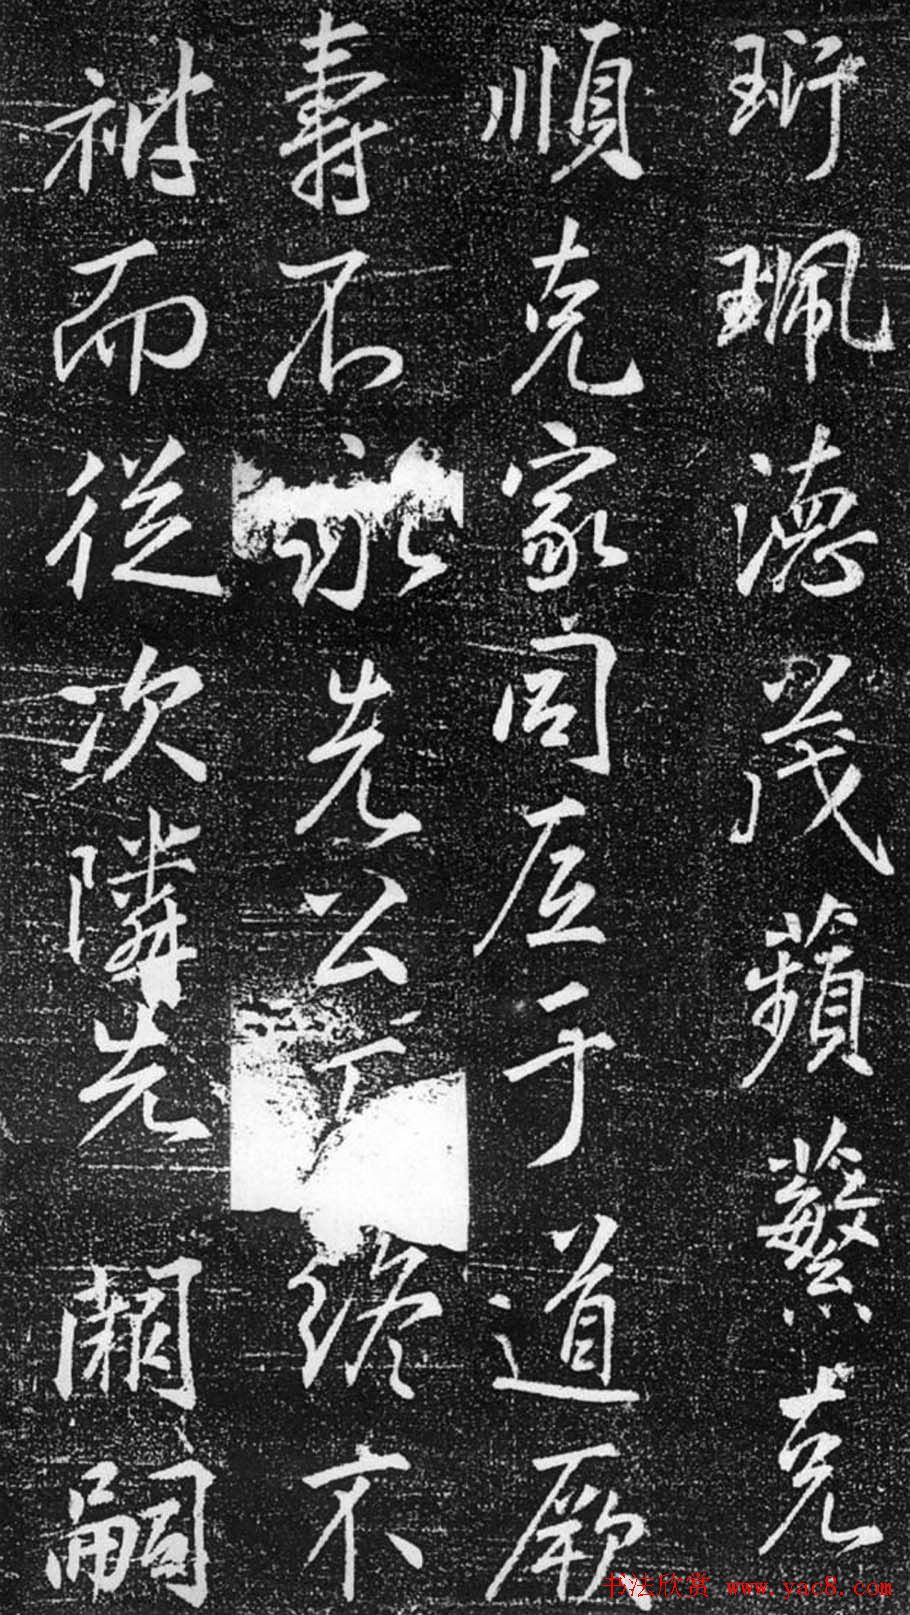 珩珮德茂蘋蘩克
順克家閫厎于道厥
壽不永先公亡終不
祔而從次隣先闕嗣
书法欣赏 www.yac8.com